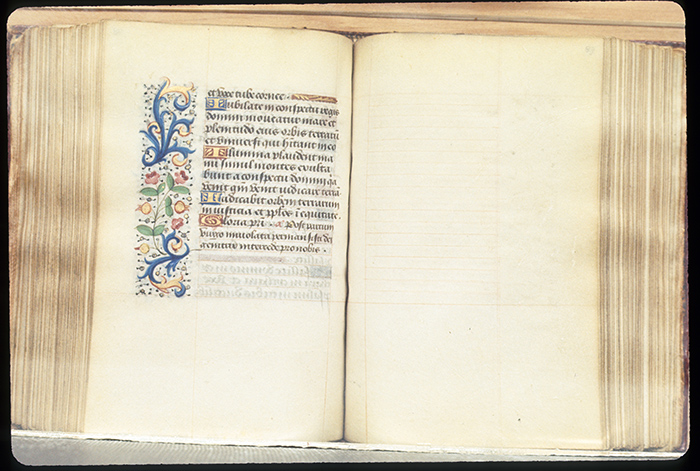 et voce tube cornee.
Jubilate in conspectu regis
domini moveatur mare et
plenitudo eius orbis terraru
et universi qui hitant in eo
Flumina plaudent ma
nu simul montes exulta
bunt a conspectu domini qa
venit qm venit iudicare terra
Iudicabit orbem terrarum
in iusticia et pplos i equitate.
Gloria pri. a Post partum
virgo inviolata permansisti dei
genitrix intercede pro nobis.